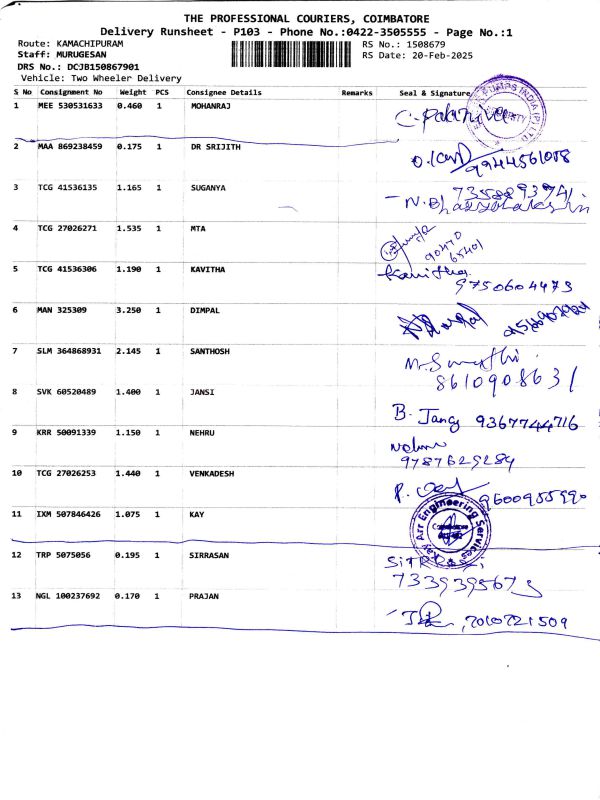 THE PROFESSIONAL COURIERS, COIMBATORE
Delivery Runsheet - P103 - Phone No.:0422-3505555 - Page No.:1
Route: KAMACHIPURAM RS No.: 1508679
Staff: MURUGESAN RS Date: 20-Feb-2025
DRS No.: DCJB150867901
Vehicle: Two Wheeler Delivery
S No Consignment No Weight PCS Consignee Details Remarks Seal & Signature
1 MEE 530531633 0.460 1 MOHANRAJ
2 MAA 869238459 0.175 1 DR SRIJITH
9944561008
3 TCG 41536135 1.165 1 SUGANYA
7358893741
4 TCG 27026271 1.535 1 MTA
90470
65401
5 TCG 41536306 1.190 1 KAVITHA Kavitha
9750604473
6 MAN 325309 3.250 1 DIMPAL
7 SLM 364868931 2.145 1 SANTHOSH
8610908631
8 SVK 60520489 1.400 1 JANSI
B. Jancy 9367744716
9 KRR 50091339 1.150 1 NEHRU
9787629284
10 TCG 27026253 1.440 1 VENKADESH
9600955990
11 IXM 507846426 1.075 1 KAY Kay Arr Engineering Services
12 TRP 5075056 0.195 1 SIRRASAN
7339395673
13 NGL 100237692 0.170 1 PRAJAN
7010721509